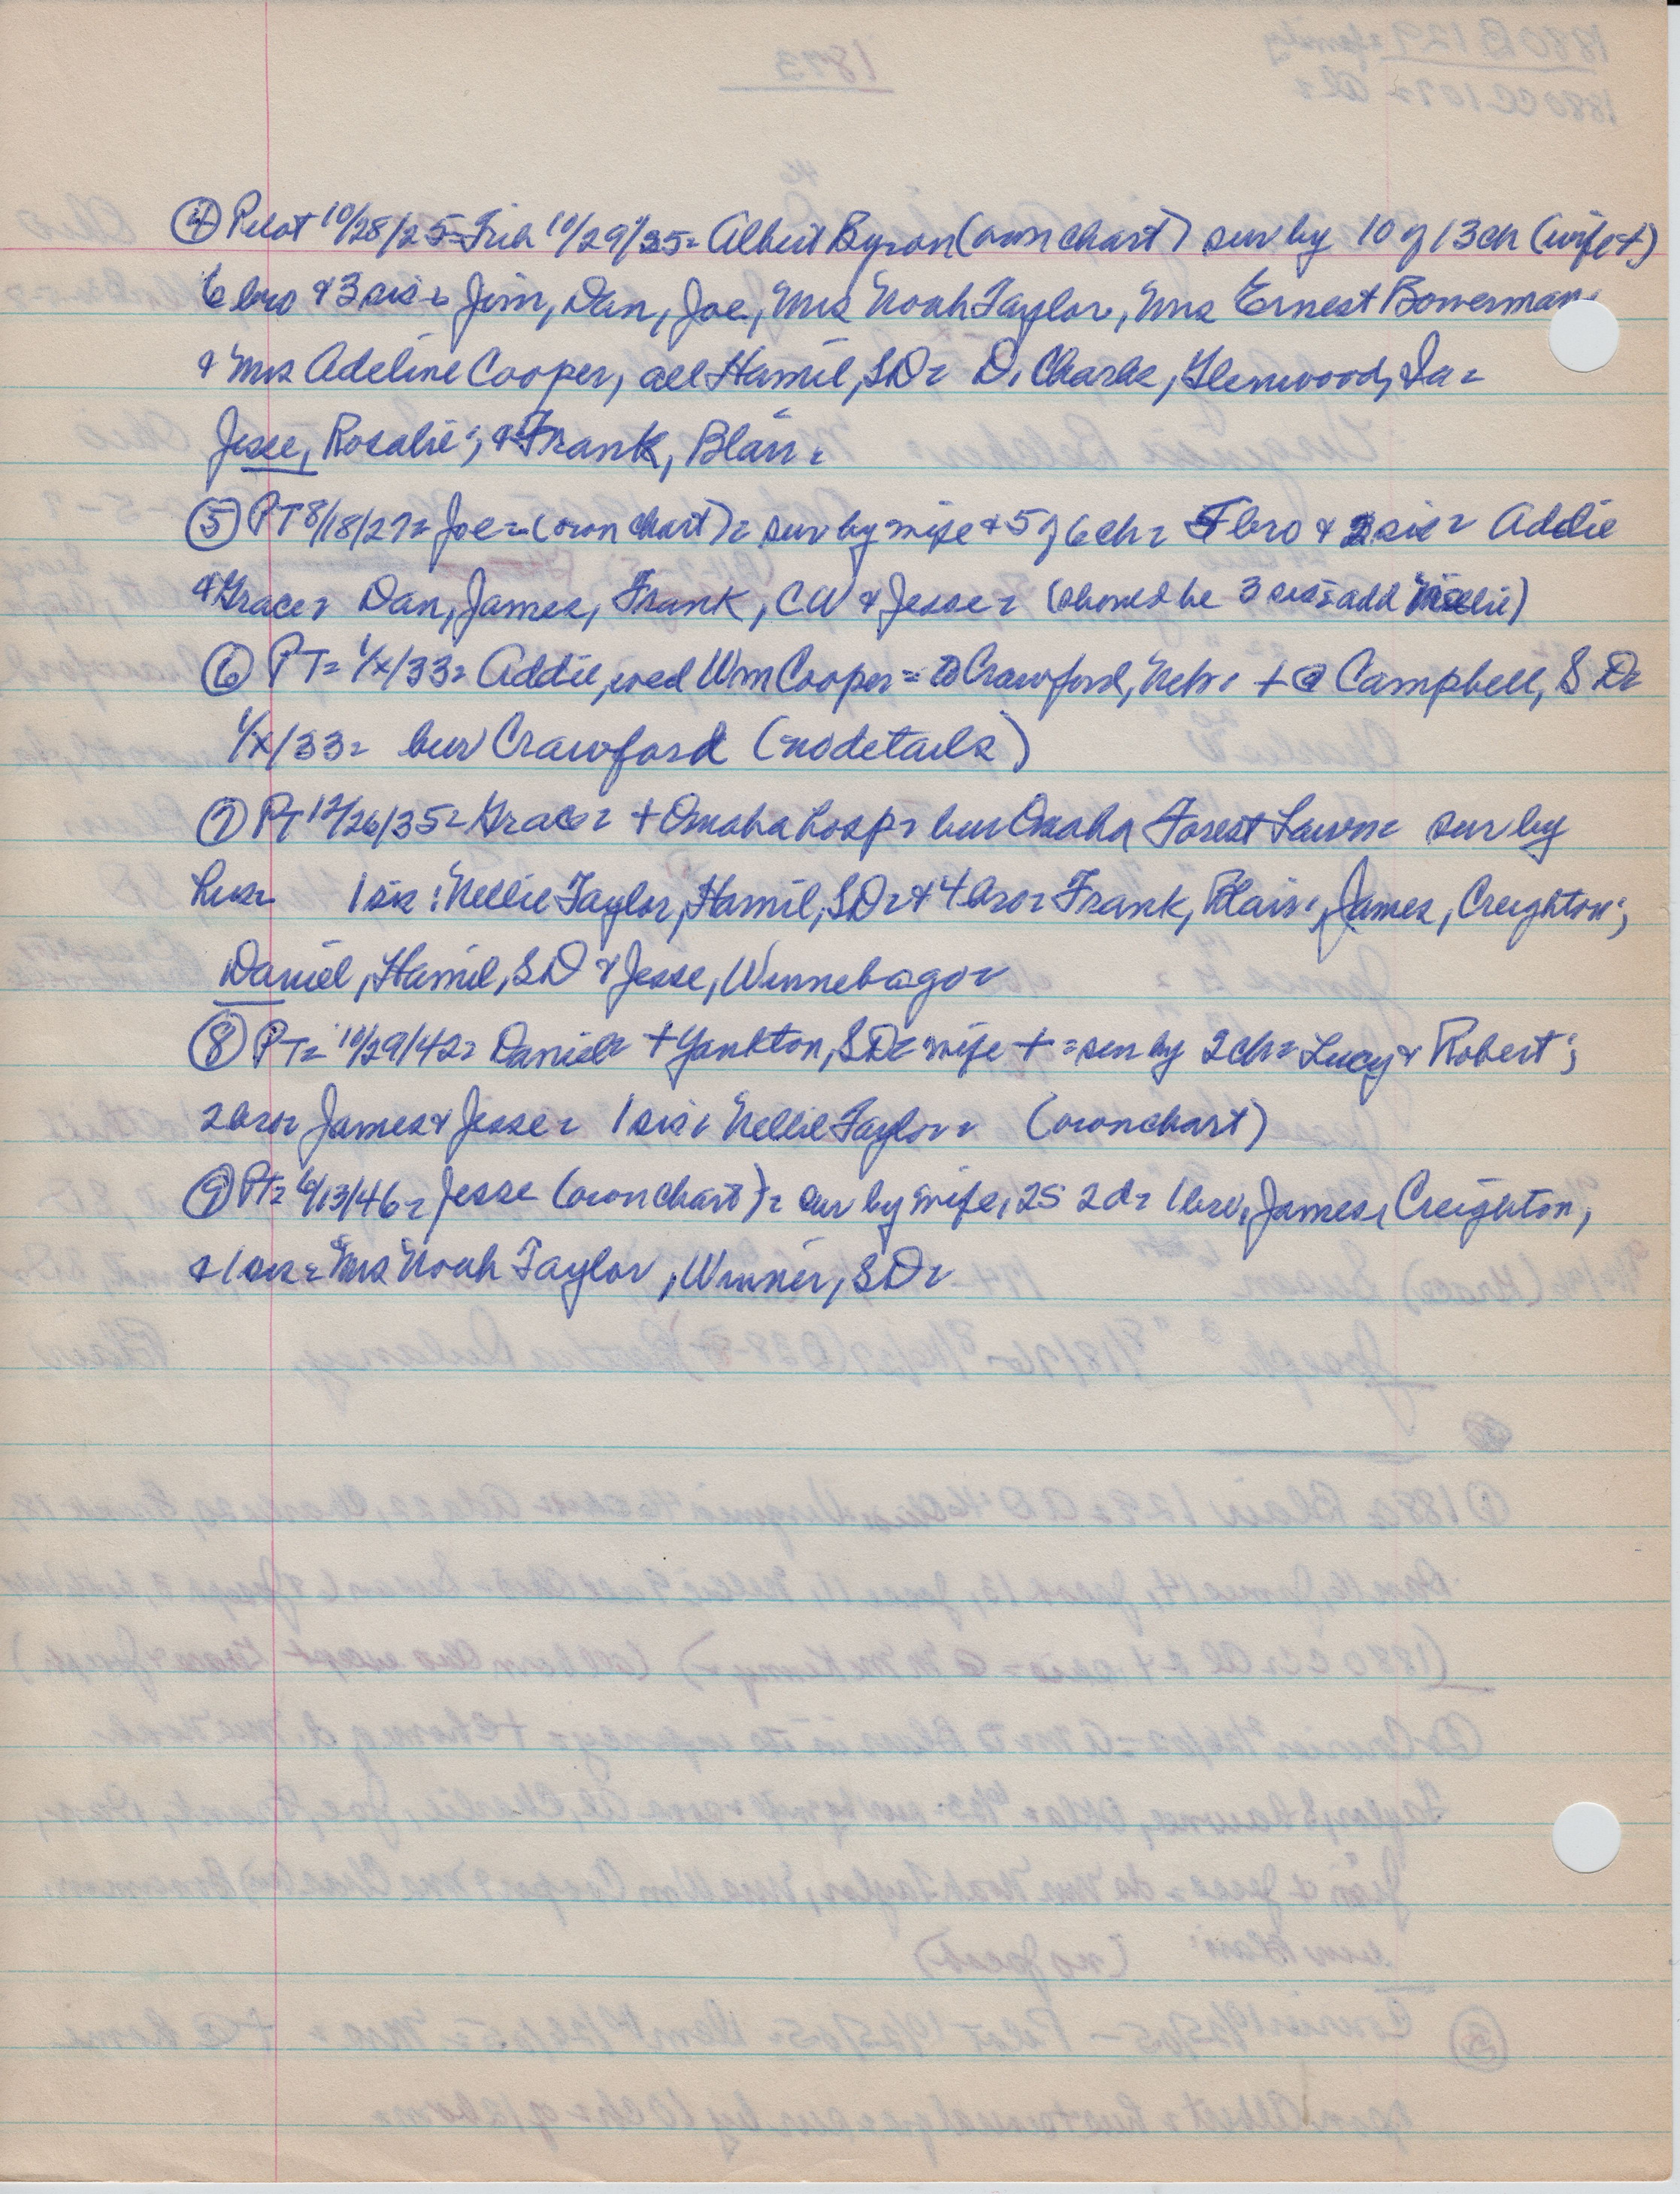 ④ Pilot 10/28/25 = Trib 10/29/35 = Albert Byron (own chart) sur by 10 of 13 ch (wife +)
6 bro & 3 sis = Jim, Dan, Joe, Mrs Noah Taylor, Mrs Ernest Bowerman,
& Mrs Adeline Cooper, all Hamil, SD = D. Charles, Glenwood, Ia =
Jesse, Rosalie; & Frank, Blair =
⑤ PT 8/18/27 = Joe = (own chart) = sur by wife & 5 of 6 ch = 5 bro & 2 sis = Addie
& Grace = Dan, James, Frank, CW & Jesse = (should be 3 sis = add Nellie)
⑥ PT = 1/x/33 = Addie, wed Wm Cooper = to Crawford, Neb. + @ Campbell, SD =
1/x/33 = bur Crawford (no details)
⑦ PT 12/26/35 = Grace = + Omaha hosp = bur Omaha Forest Lawn = sur by
hus = 1 sis: Nellie Taylor, Hamil, SD = & 4 bro = Frank, Blair; James, Creighton;
Daniel, Hamil, SD & Jesse, Winnebago =
⑧ PT = 10/29/42 = Daniel = + Yankton, SD = wife + = sur by 2 ch = Lucy & Robert;
2 bro = James & Jesse = 1 sis = Nellie Taylor = (own chart)
⑨ PT = 6/13/46 = Jesse (own chart) = sur by wife, 2S 2d = 1 bro, James, Creighton,
& 1 sis = Mrs Noah Taylor, Winner, SD =